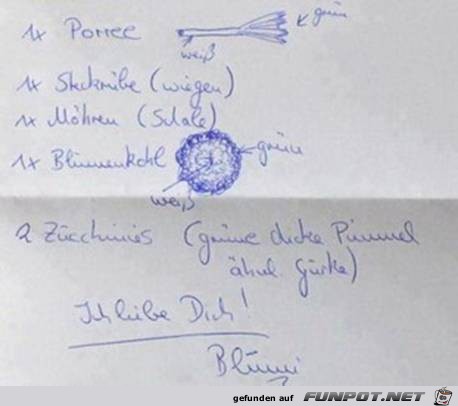 1x Porree
grün
weiß
1x Steckrübe (wiegen)
1x Möhren (Schale)
1x Blumenkohl
grün
weiß
2 Zucchinis (grüne dicke Pimmel
ähnl. Gurke)
Ich liebe Dich!
Blümi
gefunden auf FUNPOT.NET